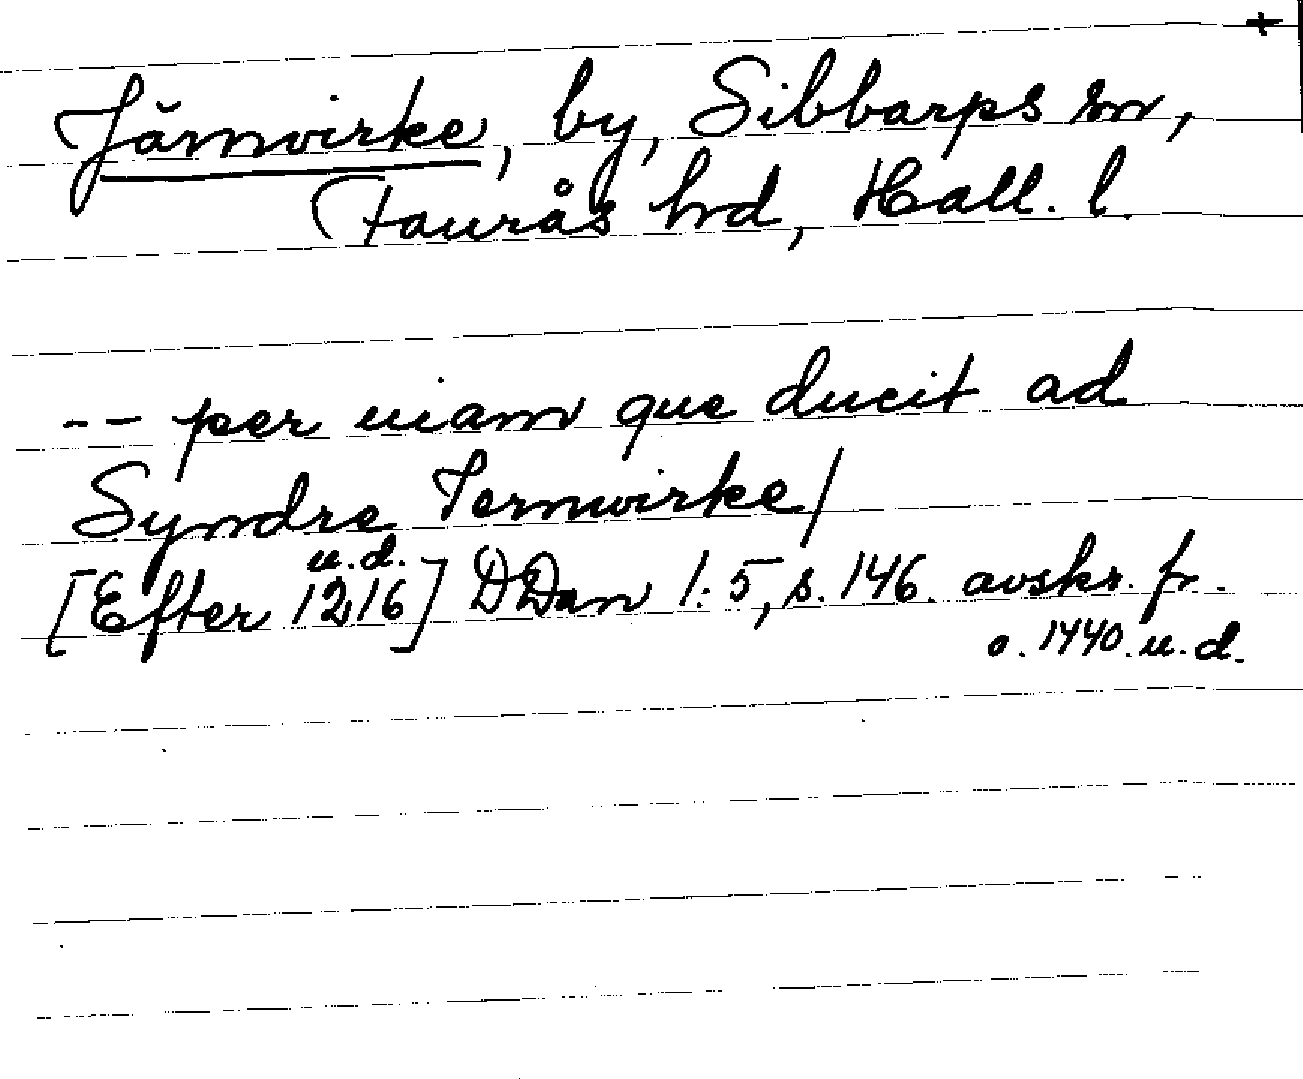 +
Järnvirke, by, Sibbarps sn,
Faurås hd, Hall. l.
-- per uiam que ducit ad
Syndre Iernwirke/
u.d.
[Efter 1216] DDan 1:5, s. 146. avskr. fr.
o. 1440. u. d.